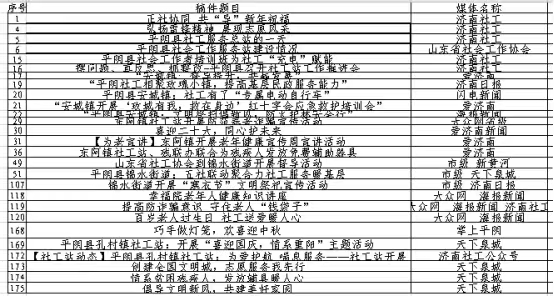 序号 稿件题目 媒体名称
1 正社协同 共“导”新年祝福 济南社工
4 弘扬雷锋精神 展现志愿风采 济南社工
5 平阴县社工服务总站的一天 济南社工
6 平阴县社会工作服务站建设情况 山东省社会工作协会
15 平阴县社会工作者培训班为社工“充电”赋能 济南社工
16 平阴县召开社工站工作推进会 济南社工
17 爱济南
19 “平阴社工相聚玫瑰小镇，提高基层民政服务能力” 济南日报
20 平阴县安城镇：社工有了“专属电动自行车” 闪电新闻
21 “安城镇开展‘玫城有我，救在身边’红十字会应急救护培训会” 爱济南
22 海报新闻
29 东阿镇社工站开展防范养老诈骗宣传活动 大众网省级
30 喜迎二十大，同心护未来 爱济南新闻
31 【为老宣讲】东阿镇开展老年健康宣传周宣讲活动 爱济南
36 东阿镇社工站、残联办联合为残疾人发放免费辅助器具 爱济南
49 山东省社工协会到锦水街道开展督导活动 市级 新黄河
51 平阴县锦水街道：百社联动聚合力社工服务暖基层 市级 天下泉城
107 锦水街道开展“寒衣节”文明祭祀宣传活动 市级 济南日报
118 幸福院老年人健康知识讲座 大众网 海报新闻
119 提高防诈骗意识 守住老人“钱袋子” 大众网 海报新闻 济南社工
120 百岁老人过生日 社工送爱暖人心 大众网 海报新闻
168 巧手做灯笼，欢喜迎中秋 掌上平阴
169 平阴县孔村镇社工站：开展“喜迎国庆，情系重阳”主题活动 天下泉城
172 【社工站动态】平阴县孔村镇社工站：为爱护航 “喘息服务——社工站开展 济南社工公众号
173 创建全国文明城，志愿服务我先行 天下泉城
174 情系贫困残疾人，发放辅具暖人心 天下泉城
175 倡导文明新风，共建美好家园 天下泉城